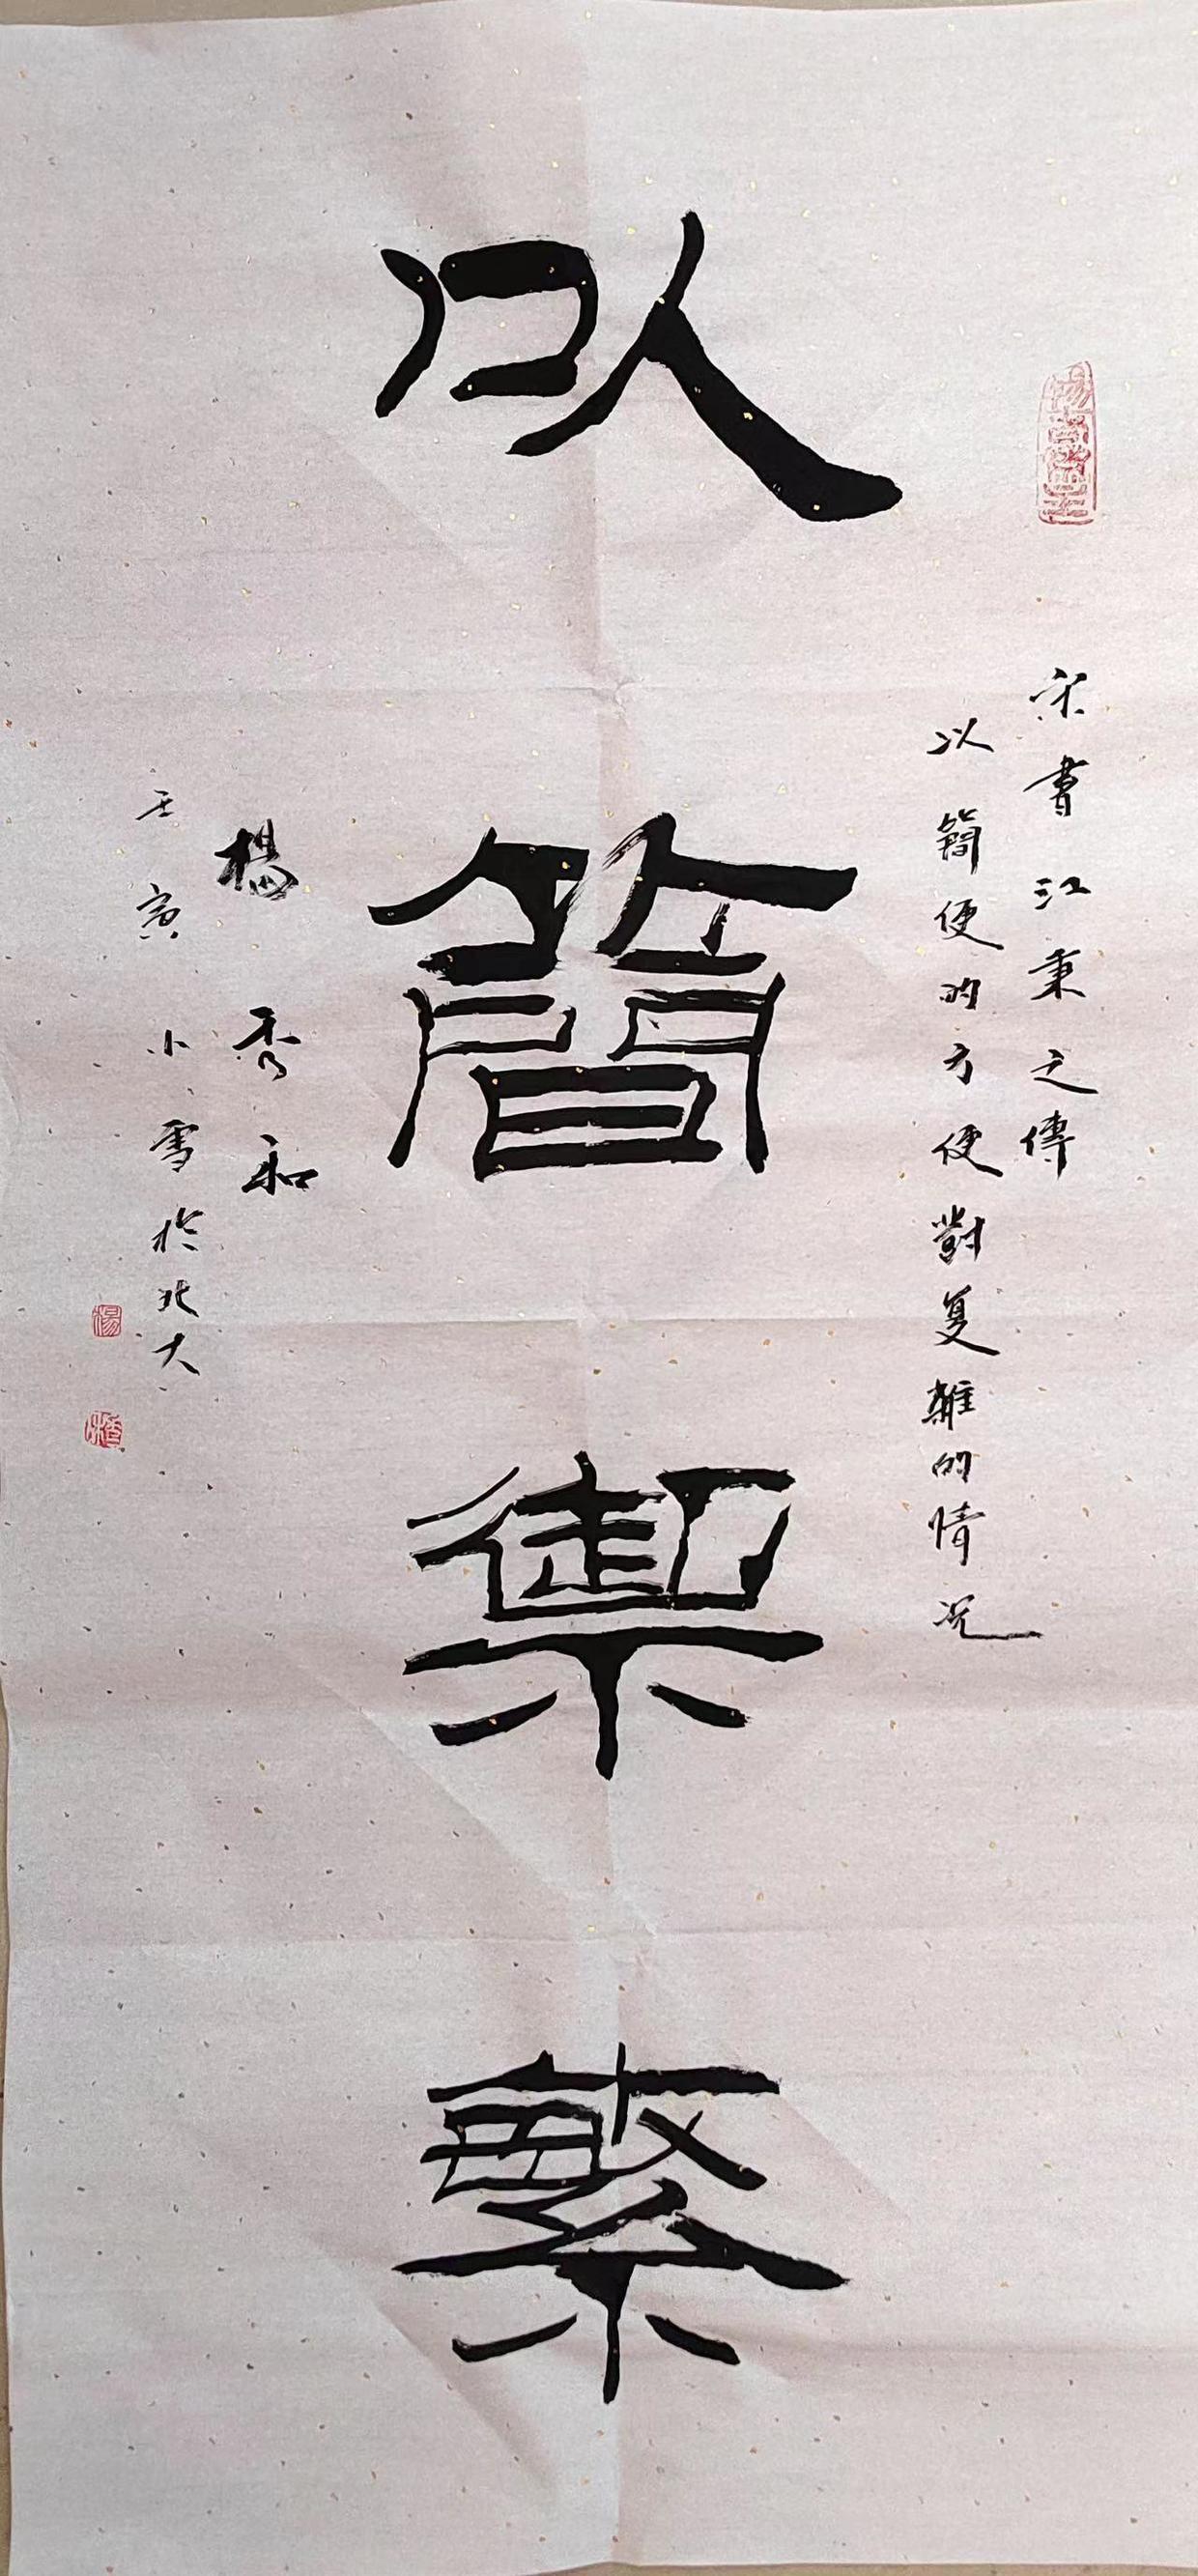 宋書江秉之傳
以簡便的方便對复雜的情况
以簡禦繁
楊秀和
壬寅小雪於北大
楊